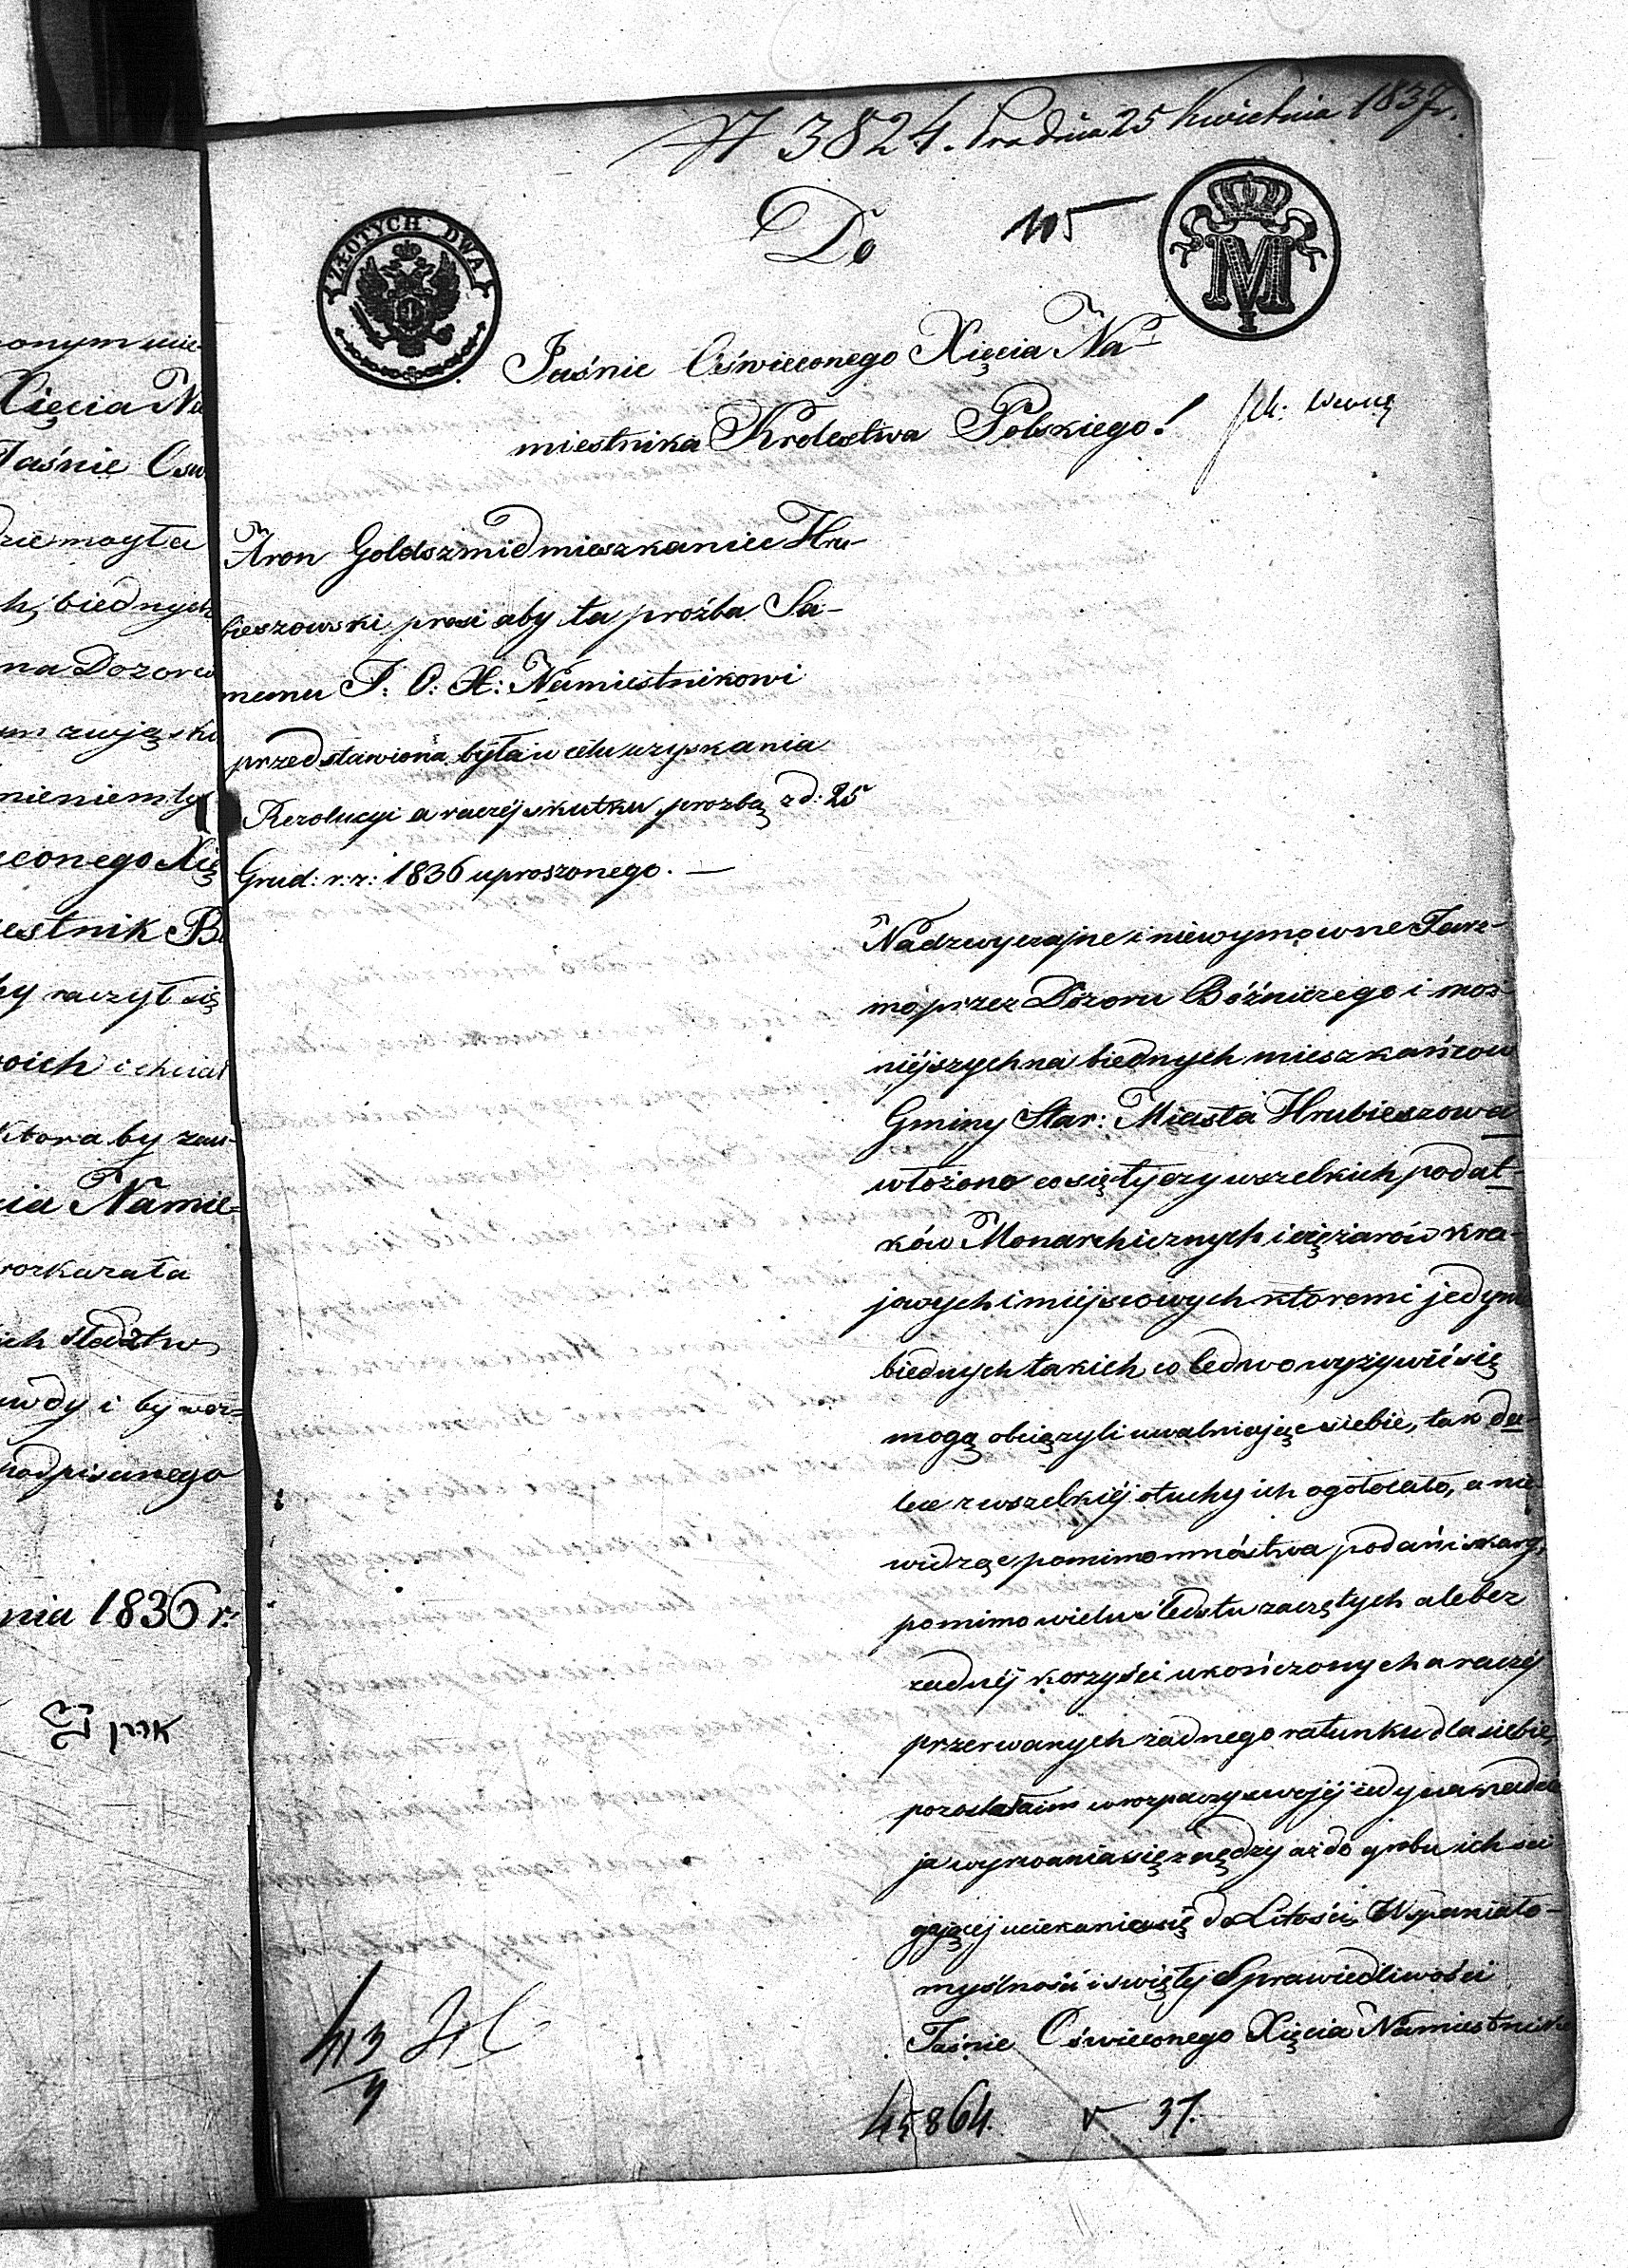 onym
Xięcia Na
Jaśnie Osw
h, biednych
na Dozorw
mieniem ty
econego Xię
estnik B
by raczył się
oich i chciał
ktora by zaw-
cia Namie=
rozkazała
ich sledztw
awdy i by wor=
podpisanego
nia 1836 r:
ארון
№ 3824. Prs dnia 25 Kwietnia 1837r.
ZŁOTYCH DWA
Do
105
M
I
Jaśnie Oświeconego Xięcia Na-
miestnika Krolestwa Polskiego!
Aron Goldszmid mieszkaniec Hru-
bieszowski prosi aby ta proźba Sa-
memu J: O: X: Namiestnikowi
przedstawiona była w celu uzyskania
Rezolucyi a raczéj skutku prozbą z d: 25
Grud: r: z: 1836 uproszonego. —
Nadzwyczajne i niewymowne Jarz-
mo przez Dozoru Bóźniczego i moż-
niéjszych na biednych mieszkańcow
Gminy Star: Miasta Hrubieszowa
włożono co się tyczy wszelkich podat-
ków Monarchicznych i ciężarów kra-
jowych i miejscowych ktoremi jedynie
biednych takich co ledwo wyżywić się
mogą obciążyli uwalniając siebie, tak da-
lece z wszelkiéj otuchy ich ogołocało, a nie
widząc pomimo mnóstwa podań i skarg,
pomimo wielu śledztw zaczętych ale bez
żadnéj korzyści ukończonych a raczéj
przerwanych żadnego ratunku dla siebie,
pozostała im w rozpaczy swojéj jedyna nadzie
ja wyrwania się z nędzy aż do grobu ich sci
gającej uciekania się do Litości, Wspaniało-
myślności i swiętej Sprawiedliwości
Jaśnie Oświeconego Xięcia Namiestnika
45864. 37.